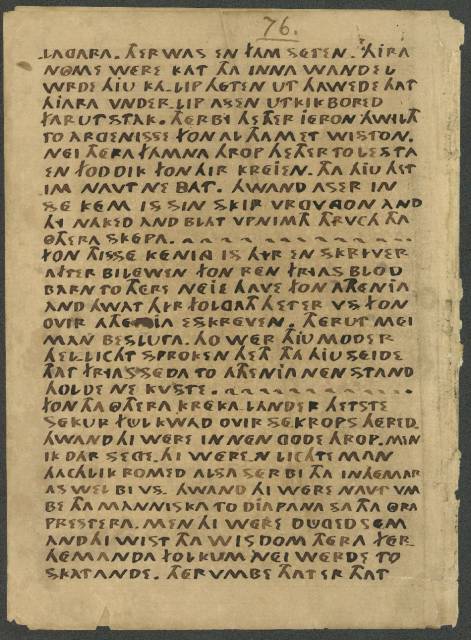 76.
LAGARA. THER WAS EN FAM SETEN. THIRA
NOME WERE KAT THA INNA WANDEL
WRDE HIU KALIP HETEN UT HAWEDE THAT
HIARA VNDERLIP ASEN UTKIKBORED
FARUTSTAK. THERBI HETHER IERON HWILTH
TO ARGENISSE FON AL THAM ET WISTON.
NEI THERA FAMNA HROP HETHER TO LESTA
EN FODDIK FON HIR KREIEN. THA HIU HET
IM NAVT NE BAT. HWAND AS ER IN
SE KEM IS SIN SKIP VRGVNGON AND
HI NAKED AND BLAT VPNIMTH THRVCH THA
OTHERA SKEPA.
FON THISSE KENING IS HYR EN SKRIVER
AFTER BILEWEN FON REN FRYAS BLOD
BARN TO THERE NEIE HAVE FON ATHENIA
AND HWAT HYR FOLGATH HETER VS FON
OVIR ATHENIA ESKREVEN. THERUT MEI
MAN BESLUTA. HO WER THIU MODER
HELLICHT SPROKEN HETH THA HIU SEIDE
THAT FRYAS SEDA TO ATHENIA NEN STAND
HOLDE NE KVSTE.
FON THA OTHERA KREKALANDER HETSTE
SEKUR FUL KWAD OVIR SEKROPS HERED.
HWAND HI WERE IN NEN GODE HROP. MEN
IK DAR SEGE. HI WERE.N LICHTE MAN
HACHLIK ROMED ALSA SER BI THA INHEMAR
AS WEL BI VS. HWAND HI WERE NAVT VM
BE THA MANNISKA TO DIAPANA SA THA ORA
PRESTERA. MEN HI WERE DUGEDSEM
AND HI WIST THA WISDOM THERA FER
HEMANDA FOLKUM NEI WERDE TO
SKATANDE. THERVMBE THAT ER THAT